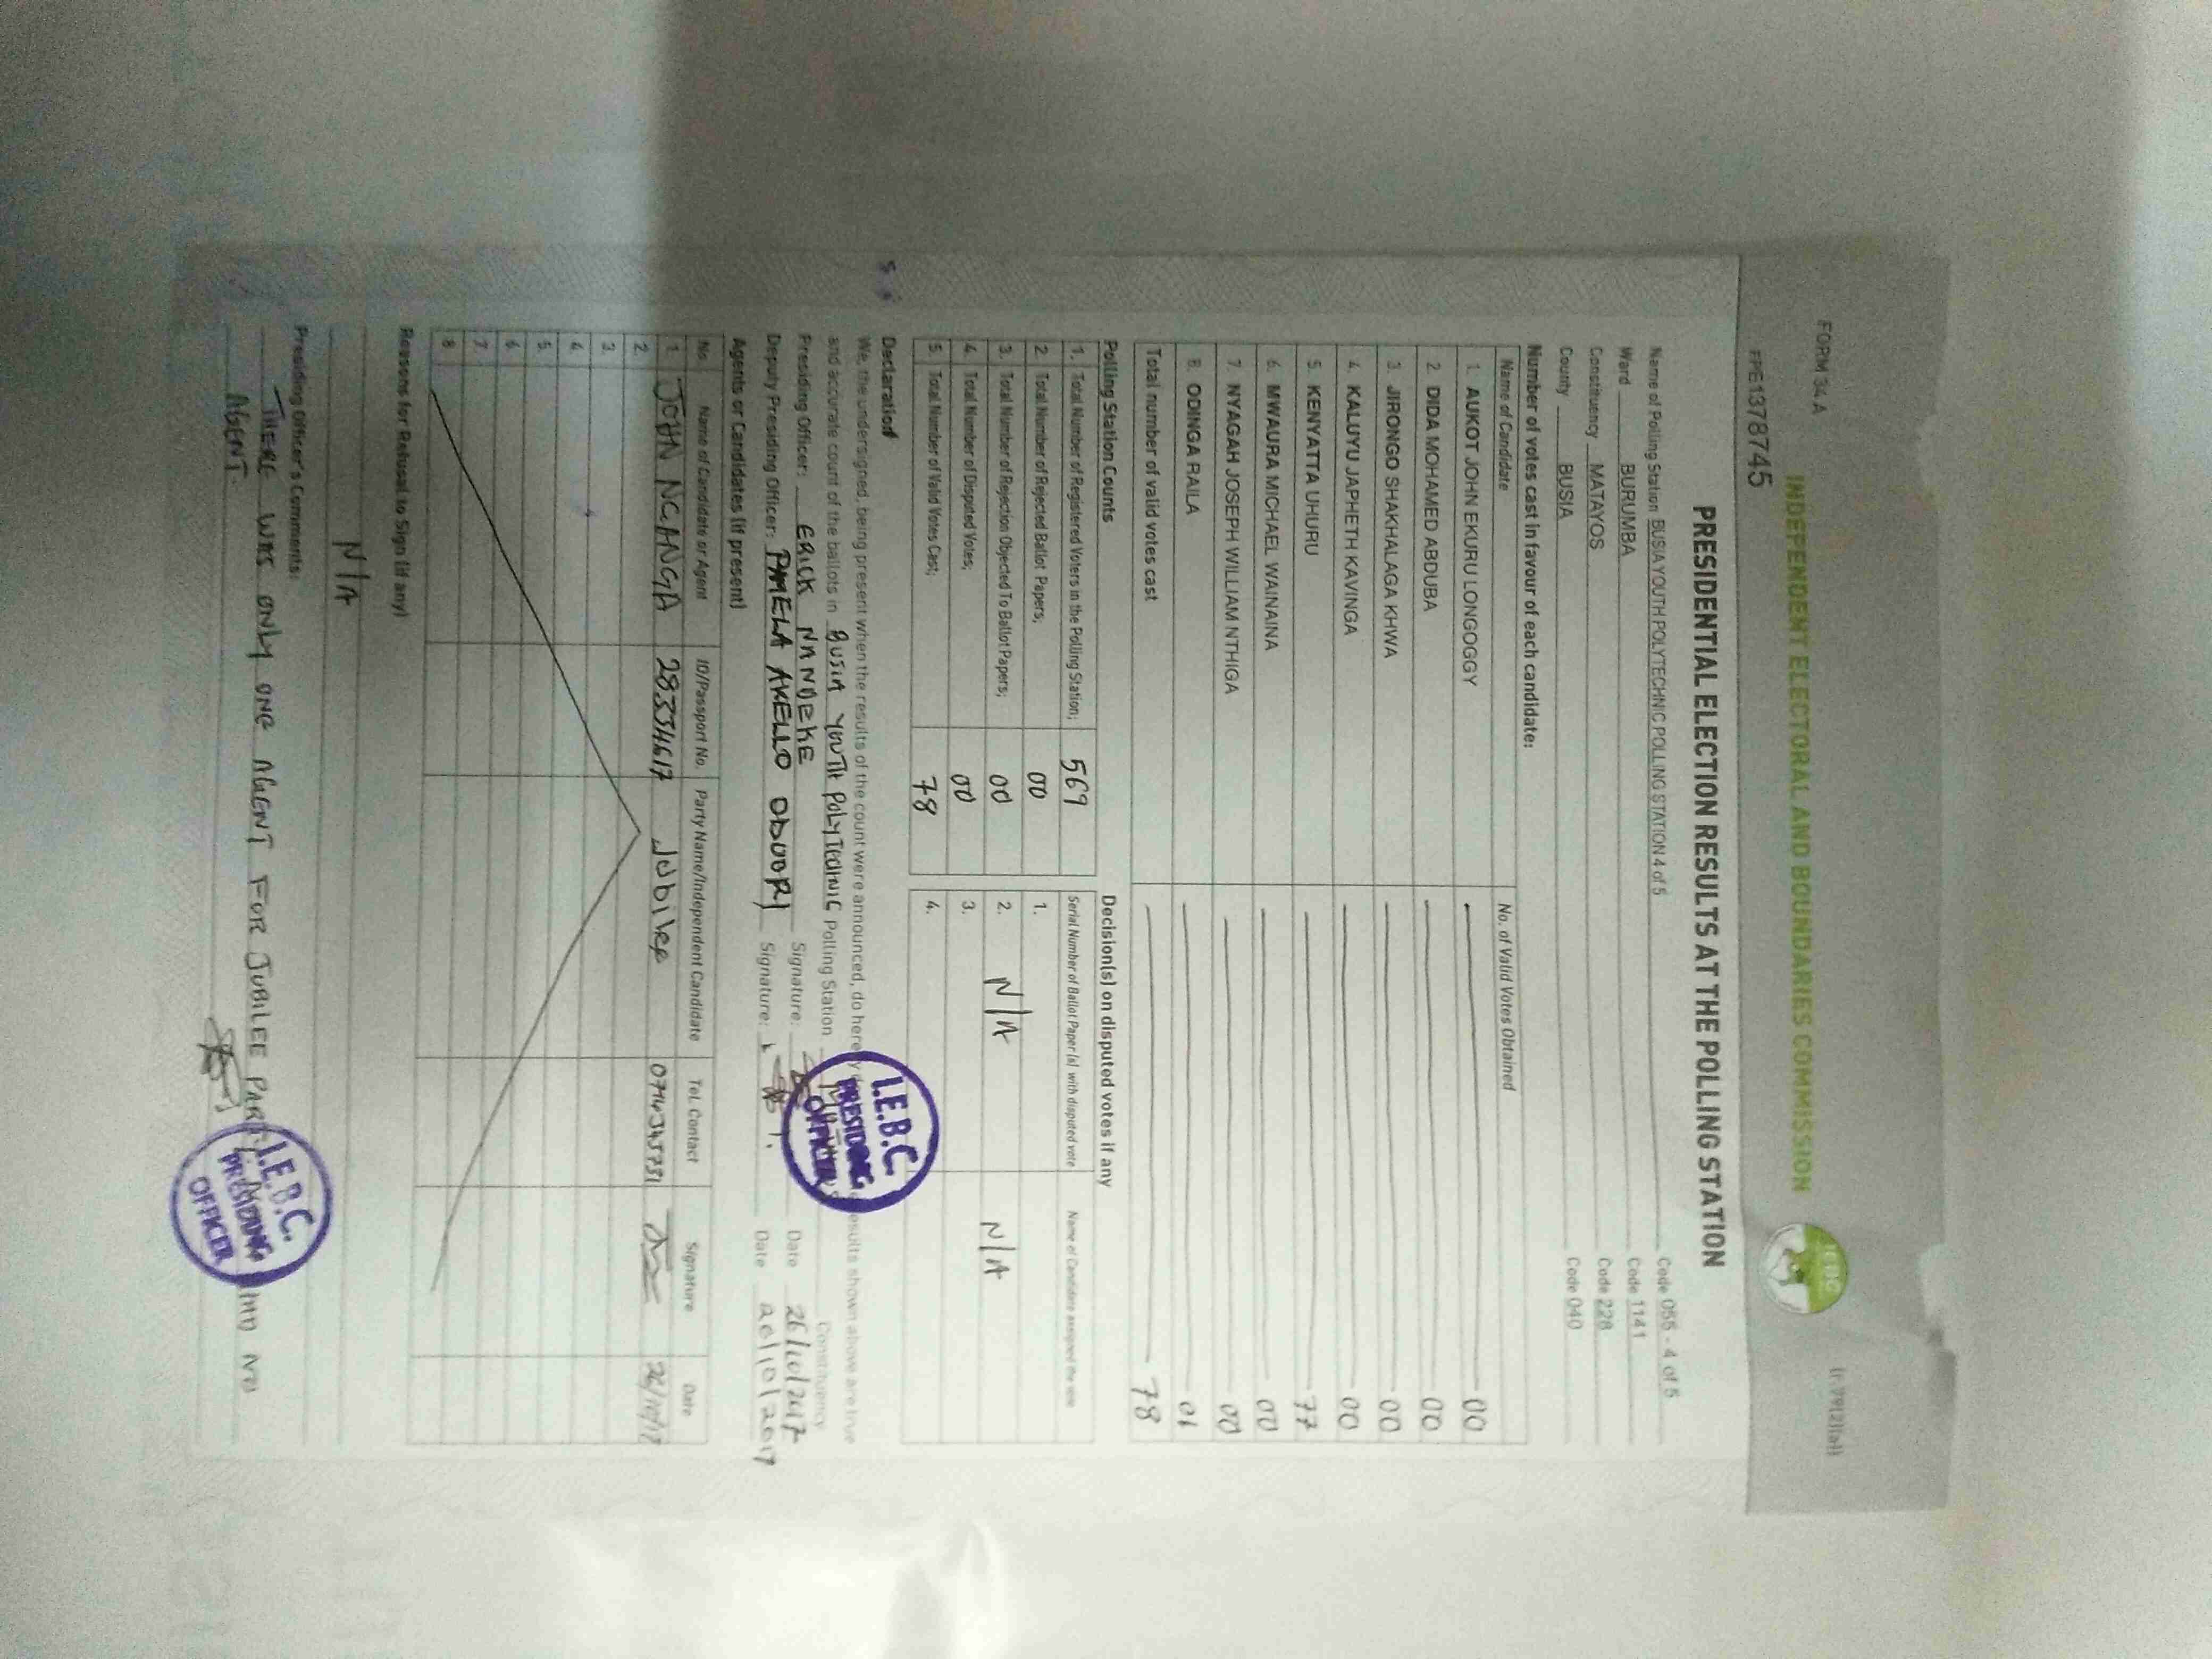 FORM 34 A (r. 79(2)(a))
INDEPENDENT ELECTORAL AND BOUNDARIES COMMISSION
IEBC
FPE1378745
PRESIDENTIAL ELECTION RESULTS AT THE POLLING STATION
Name of Polling Station BUSIA YOUTH POLYTECHNIC POLLING STATION 4 of 5 Code 055 - 4 of 5
Ward BURUMBA Code 1141
Constituency MATAYOS Code 228
County BUSIA Code 040
Number of votes cast in favour of each candidate:
Name of Candidate No. of Valid Votes Obtained
1. AUKOT JOHN EKURU LONGOGGY 00
2. DIDA MOHAMED ABDUBA 00
3. JIRONGO SHAKHALAGA KHWA 00
4. KALUYU JAPHETH KAVINGA 00
5. KENYATTA UHURU 77
6. MWAURA MICHAEL WAINAINA 00
7. NYAGAH JOSEPH WILLIAM NTHIGA 00
8. ODINGA RAILA 01
Total number of valid votes cast 78
Polling Station Counts
1. Total Number of Registered Voters in the Polling Station; 569
2 Total Number of Rejected Ballot Papers; 00
3. Total Number of Rejection Objected To Ballot Papers; 00
4. Total Number of Disputed Votes; 00
5. Total Number of Valid Votes Cast; 78
Decision(s) on disputed votes if any
Serial Number of Ballot Paper (s) with disputed vote Name of Candidate assigned the vote
1.
2. N/A N/A
3.
4.
Declaration
We, the undersigned, being present when the results of the count were announced, do hereby results shown above are true
and accurate count of the ballots in BUSIA YOUTH POLYTECHNIC Polling Station Constituency
Presiding Officer: ERICK Signature: Date 26/10/2017
Deputy Presiding Officer: PAMELA AKELLO ODUORI Signature: Date 26/10/2017
I.E.B.C.
PRESIDING
OFFICER
Agents or Candidates (if present)
No. Name of Candidate or Agent ID/Passport No. Party Name/Independent Candidate Tel. Contact Signature Date
1 JOHN NGANGA 28334617 Jubilee 26/10/17
2.
3.
4
5.
6.
7.
8
Reasons for Refusal to Sign (if any)
N/A
Presiding Officer's Comments:
THERE WAS ONLY ONE AGENT FOR JUBILEE PARTY AND NO
AGENT.
I.E.B.C.
PRESIDING
OFFICER